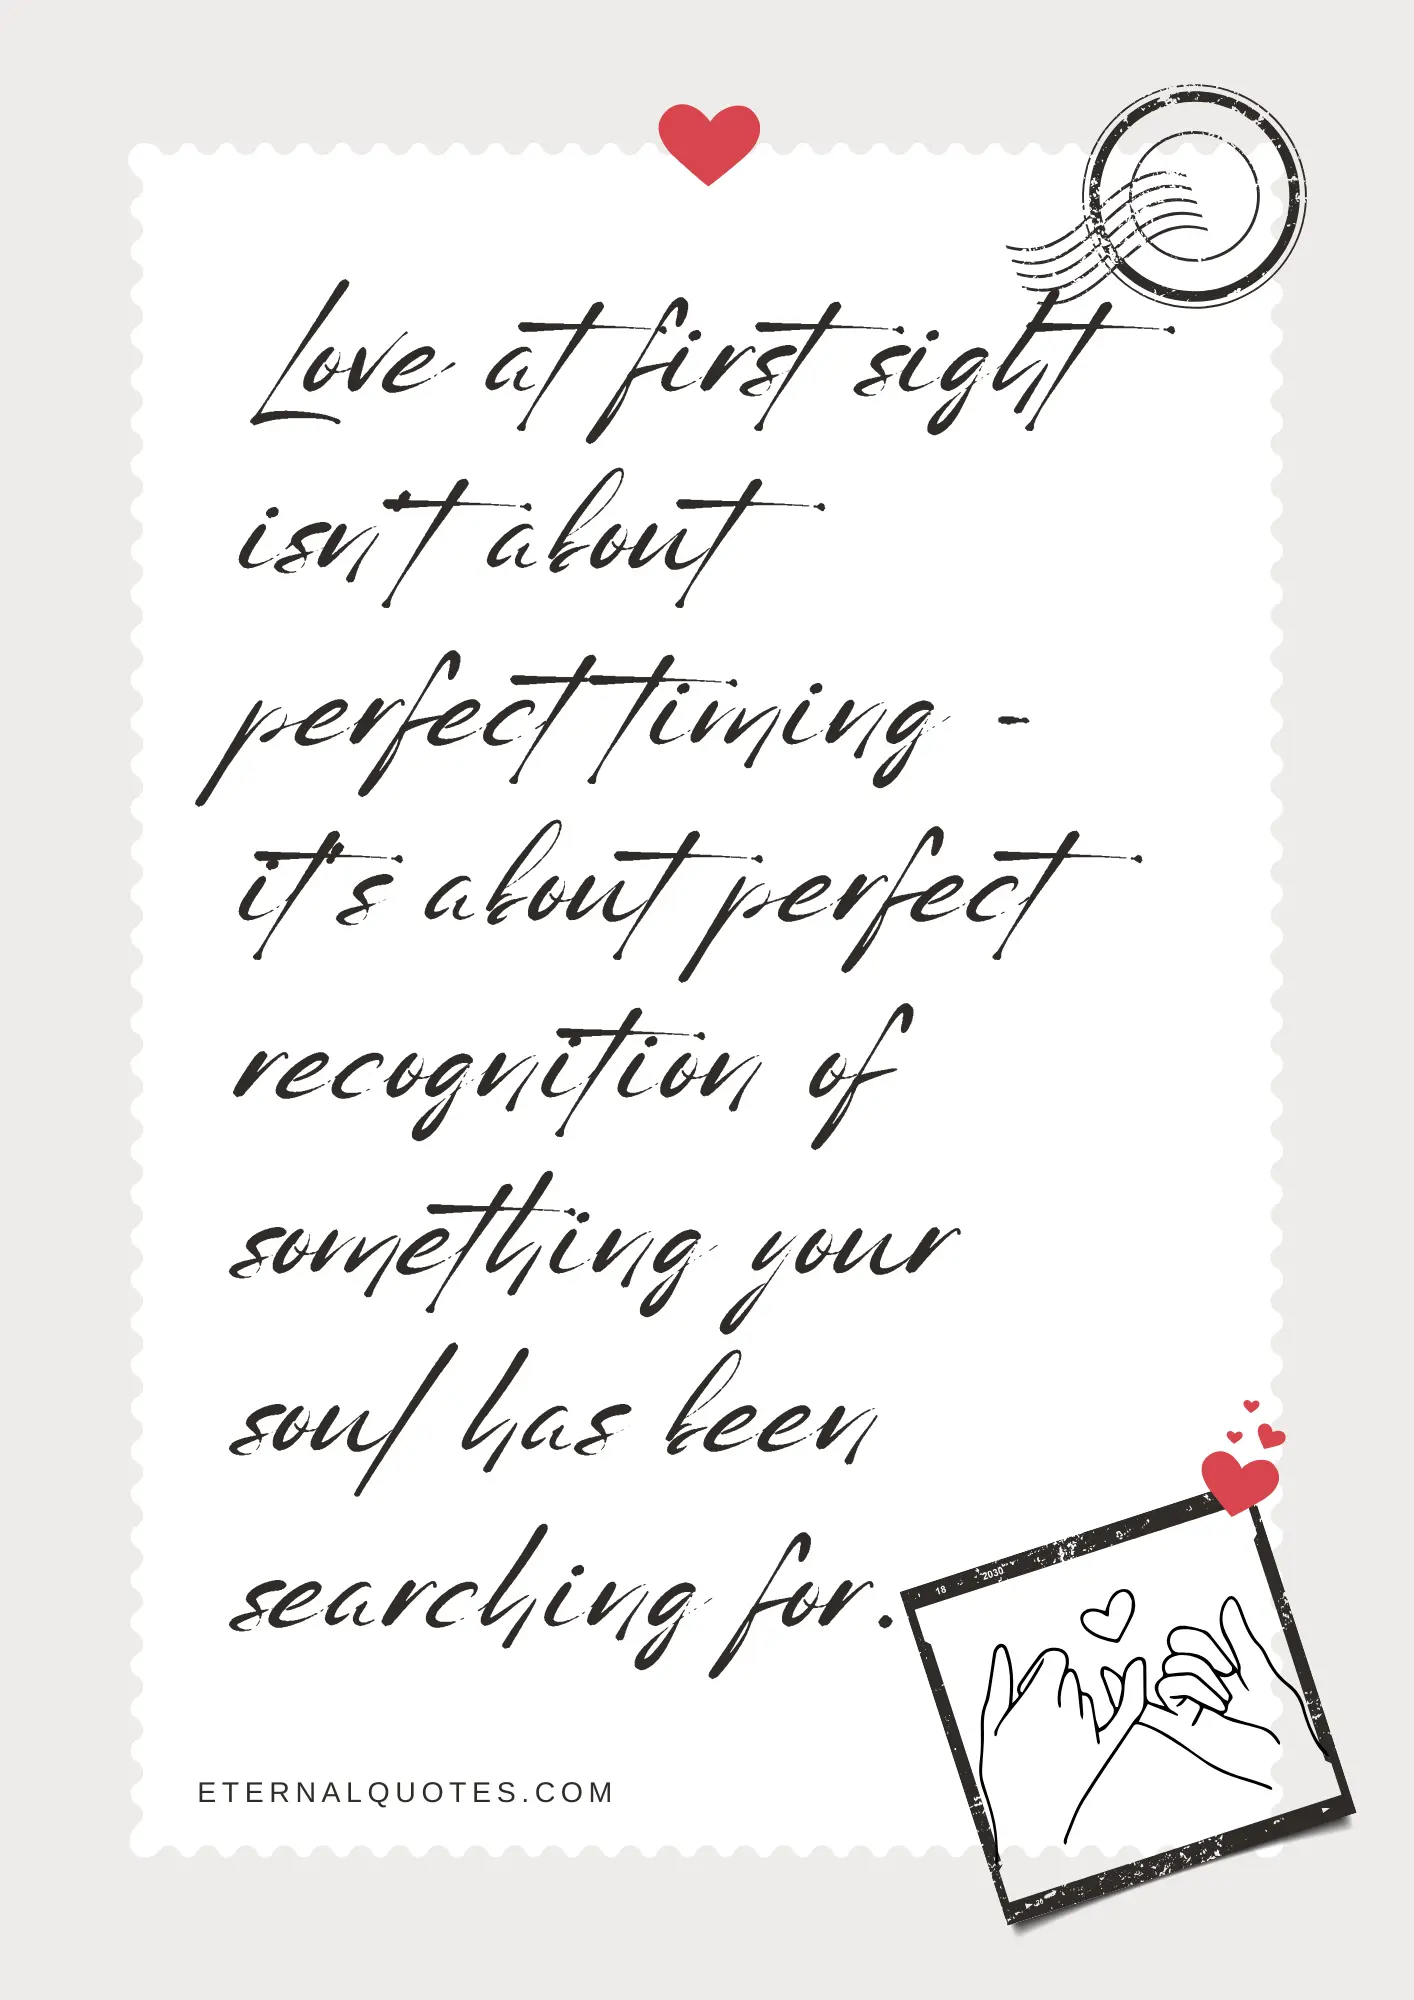 Love at first sight
isn't about
perfect timing -
it's about perfect
recognition of
something your
soul has been
searching for.
18 2030
ETERNALQUOTES.COM